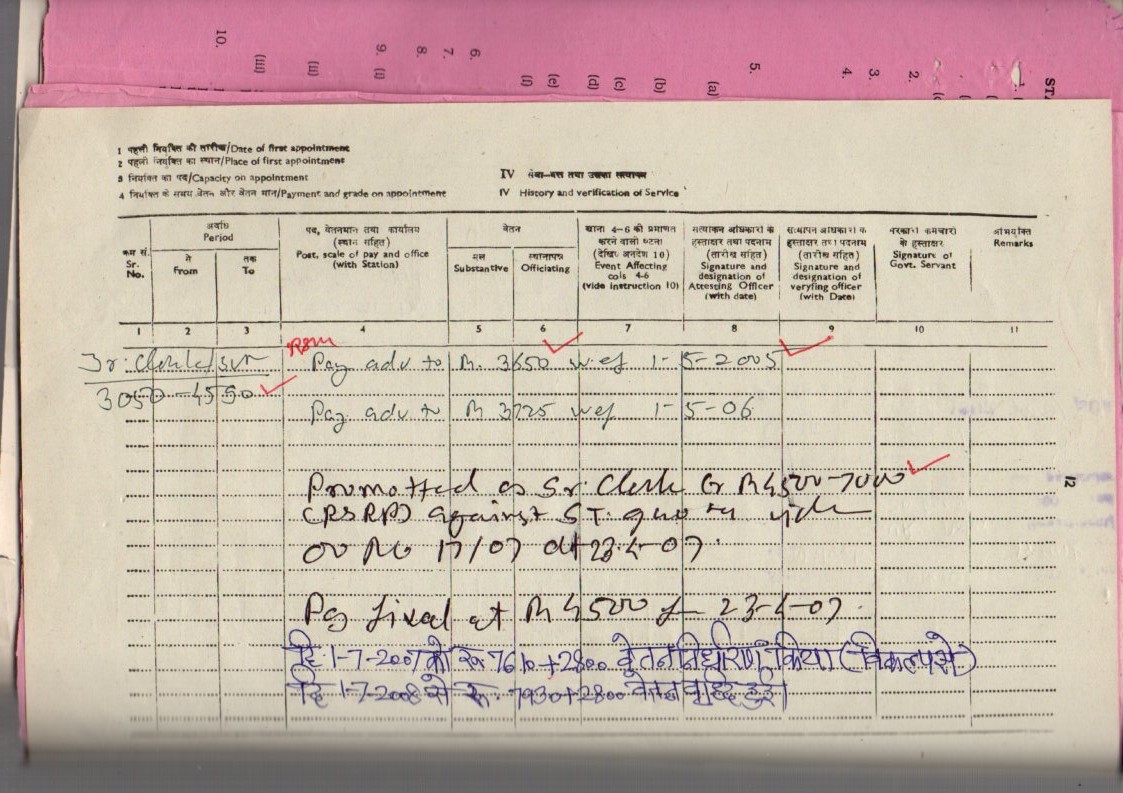 10. (iii) (ii) 9. (i) 8. 7. 6. (f) (e) (d) (c) (b) (a) 5. 4. 3. 2.
1 पहली नियुक्ति की तारीख/Date of first appointment
2 पहली नियुक्ति का स्थान/Place of first appointment
3 नियुक्ति का पद/Capacity on appointment
4 नियुक्ति के समय वेतन और वेतन मान/Payment and grade on appointment
IV सेवा-वृत्त तथा उसका सत्यापन
IV History and verification of Service
क्रम सं. Sr. No.
अवधि Period
से From
तक To
पद, वेतनमान तथा कार्यालय (स्थान सहित) Post, scale of pay and office (with Station)
वेतन
मूल Substantive
स्थानापन्न Officiating
खाना 4-6 को प्रमाणित करने वाली घटना (देखिए अनुदेश 10) Event Affecting cols 4-6 (vide instruction 10)
सत्यापन अधिकारी के हस्ताक्षर तथा पदनाम (तारीख सहित) Signature and designation of Attesting Officer (with date)
सत्यापन अधिकारी के हस्ताक्षर तथा पदनाम (तारीख सहित) Signature and designation of veryfing officer (with Date)
सरकारी कर्मचारी के हस्ताक्षर Signature of Govt. Servant
अभियुक्ति Remarks
1 2 3 4 5 6 7 8 9 10 11
Jr. Clerk
3050-4590
Pay adv to R. 3650 w.ef 1-5-2005
Pay adv to R 3725 wef 1-5-06
12
Promotted as Sr. Clerk Gr R 4500-7000
(RSRP) against S.T. quota vide
OO No 17/07 dt 23.4-07.
Pay fixed at R 4500 23-4-07.
दि 1-7-2007 को रू 7610+2800 वेतन निर्धारण किया (विकल्प से)
दि 1-7-2008 से रू. 7930+2800 वेतन वृद्धि हुई।